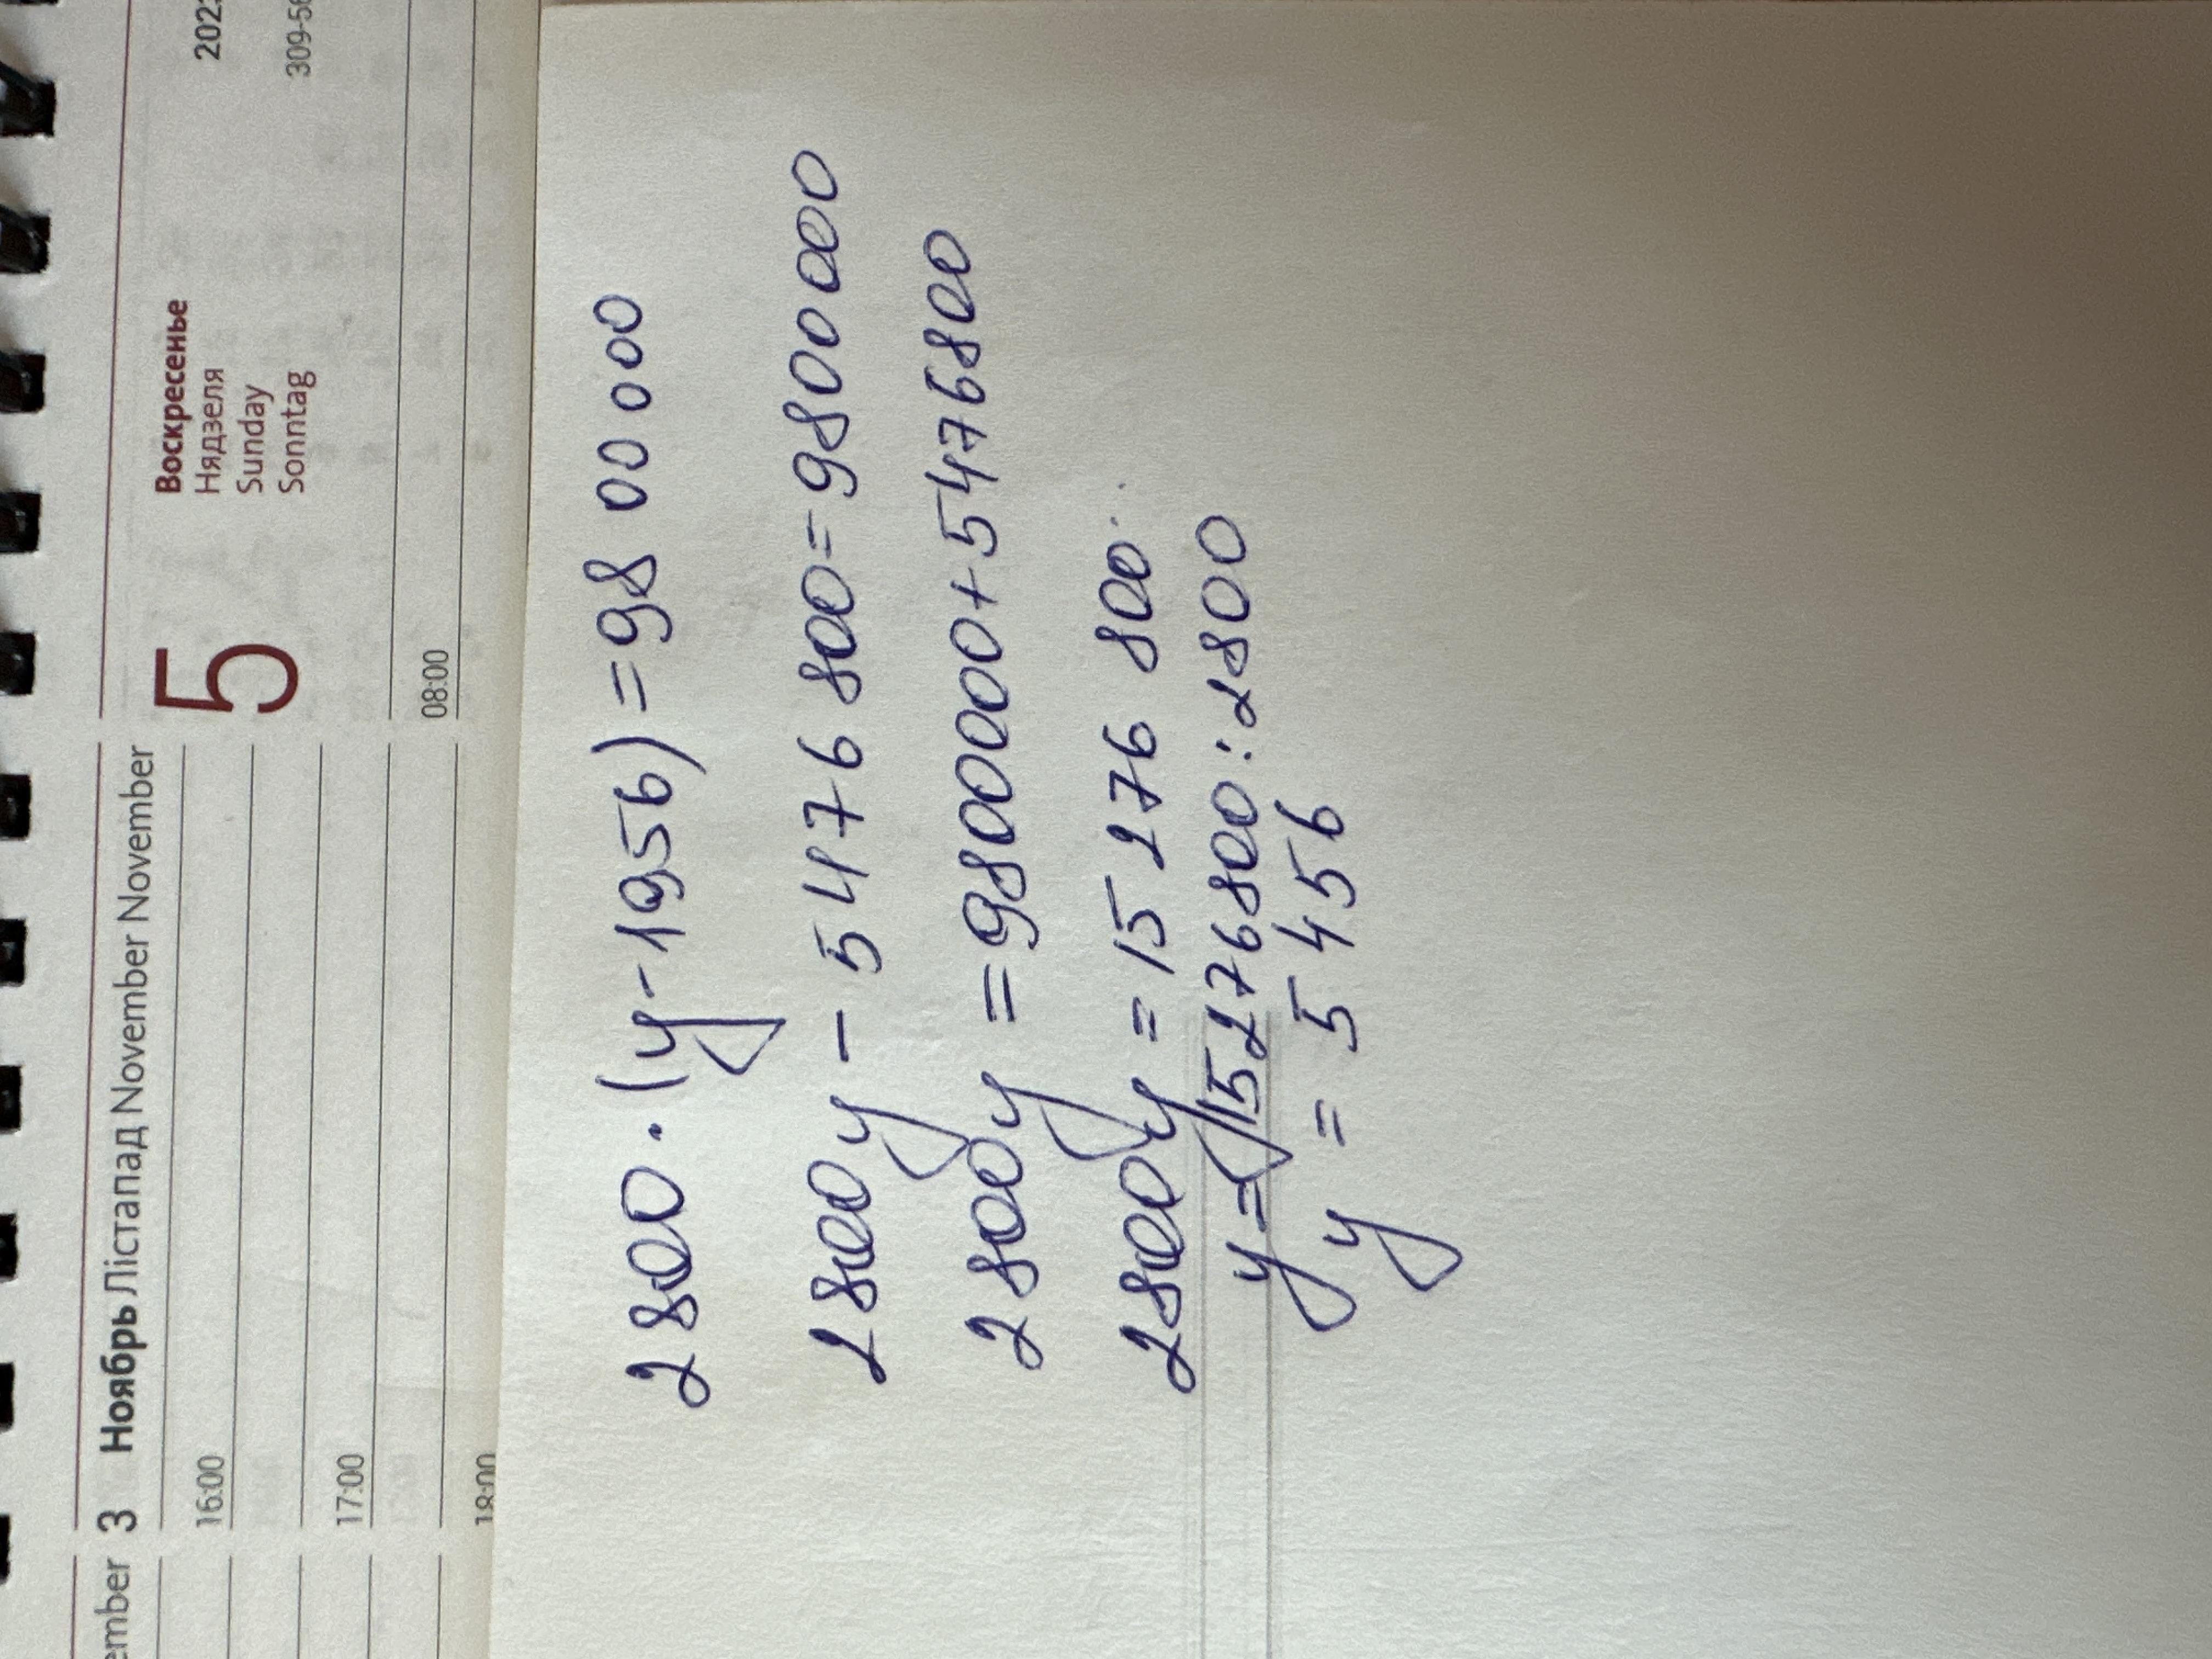 ember 3
Ноябрь Лістапад November November
16:00
17:00
18:00
5
Воскресенье
Нядзеля
Sunday
Sonntag
309-56
08:00
2800·(y-1956)=98 00 000
2800y - 5 476 800=9800000
2800y =9800000+5476800
2800y=15 276 800
y=15276800:2800
y = 5 456